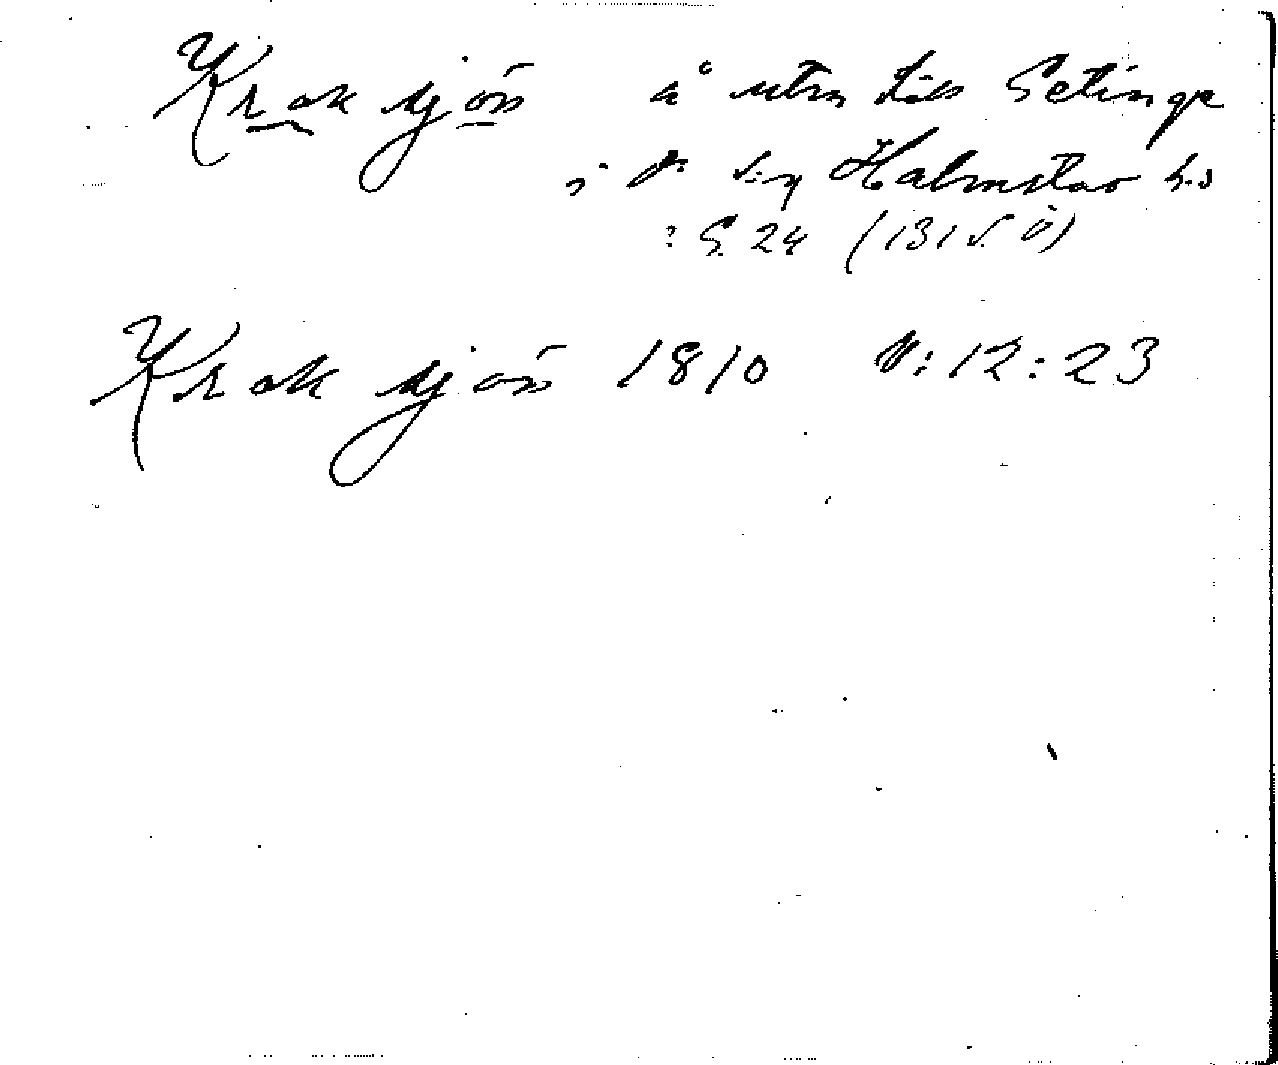 Krok sjön å utm till Getinge
i d. s:n Halmstad h.d
: S. 24 (131 v. ö)
Krok sjön 1810 V:12:23